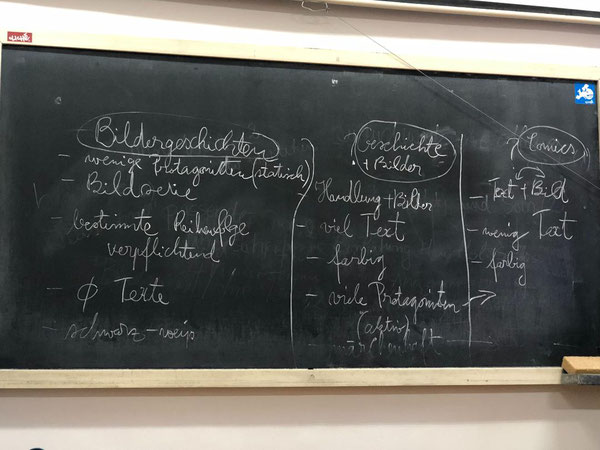 Bildergeschichten
- wenige Protagonisten (statisch)
- Bildserie
- bestimmte Reihenfolge
verpflichtend
- ∅ Texte
- schwarz-weiß
Geschichte
+ Bilder
Handlung + Bilder
- viel Text
- farbig
- viele Protagonisten →
(aktiv)
- märchenhaft
Comics
- Text + Bild
- wenig Text
- farbig